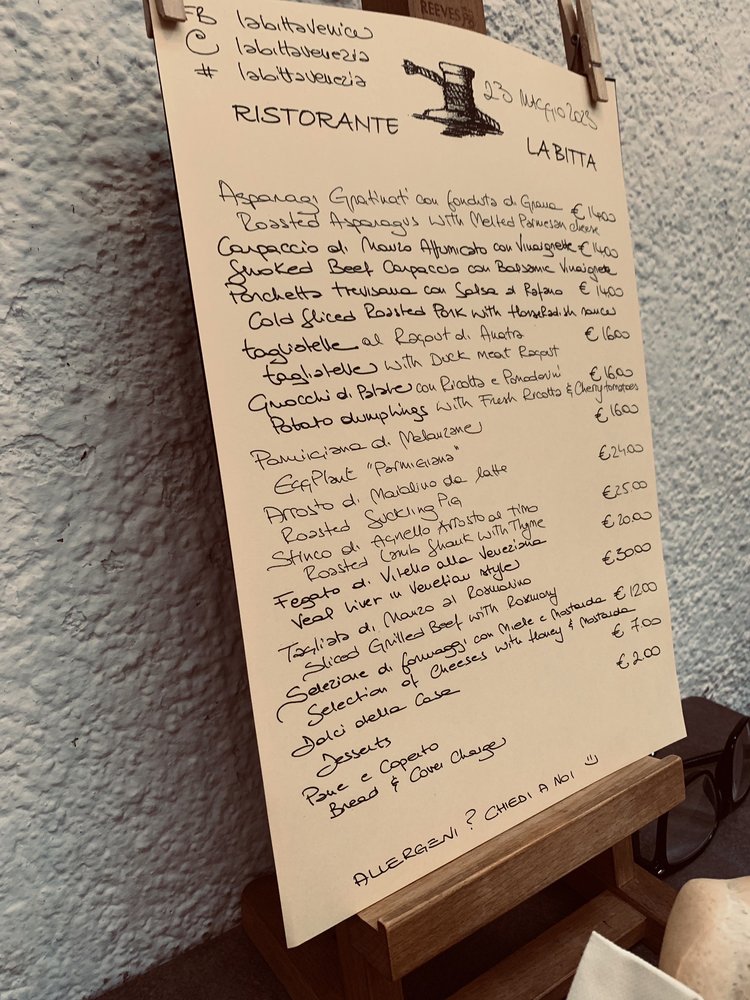 REEVES
FB labittavenice
C labittavenezia
# labittavenezia
23 MAGGIO 2023
RISTORANTE
LA BITTA
Asparagi Gratinati con fonduta di Grana € 14.00
Roasted Asparagus with Melted Parmesan cheese
Carpaccio di Manzo Affumicato con Vinaigrette € 14.00
Smoked Beef Carpaccio con Balsamic Vinaigrete
Porchetta trevisana con Salsa al Rafano € 14.00
Cold Sliced Roasted Pork with Horseradish sauce
tagliatelle al Ragout di Anatra € 16.00
tagliatelle with Duck meat Ragout
Gnocchi di Patate con Ricotta e Pomodorini € 16.00
Potato dumplings with Fresh Ricotta & Cherry tomatoes
Parmigiana di Melanzane € 16.00
EggPlant "Parmigiana"
Arrosto di Maialino da latte € 24.00
Roasted Suckling Pig
Stinco di Agnello Arrosto al Timo € 25.00
Roasted Lamb Shank with Thyme
Fegato di Vitello alla Veneziana € 20.00
Veal liver in Venetian style
Tagliata di Manzo al Rosmarino € 30.00
Sliced Grilled Beef with Rosmary
Selezione di formaggi con Miele e Mostarda € 12.00
Selection of Cheeses with Honey & Mostarda
Dolci della Casa € 7.00
Desserts
Pane e Coperto € 2.00
Bread & Cover Charge
ALLERGENI? CHIEDI A NOI